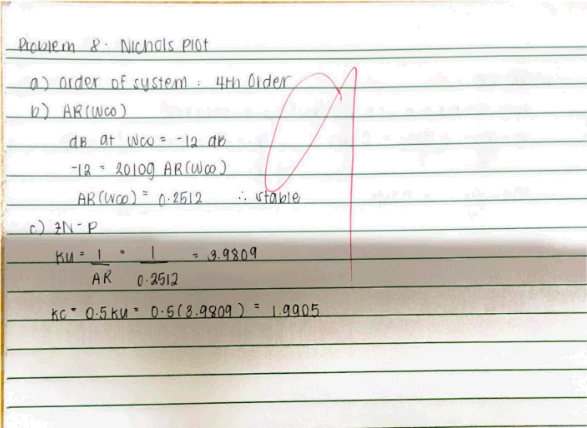 Problem 8: Nichols Plot
a) order of system: 4th Order
b) AR(wco)
dB at wco = -12 dB
-12 = 20log AR(wco)
AR(wco) = 0.2512 ∴ stable
c) ZN-P
Ku = 1 = 1 = 3.9809
AR 0.2512
Kc = 0.5Ku = 0.5(3.9809) = 1.9905